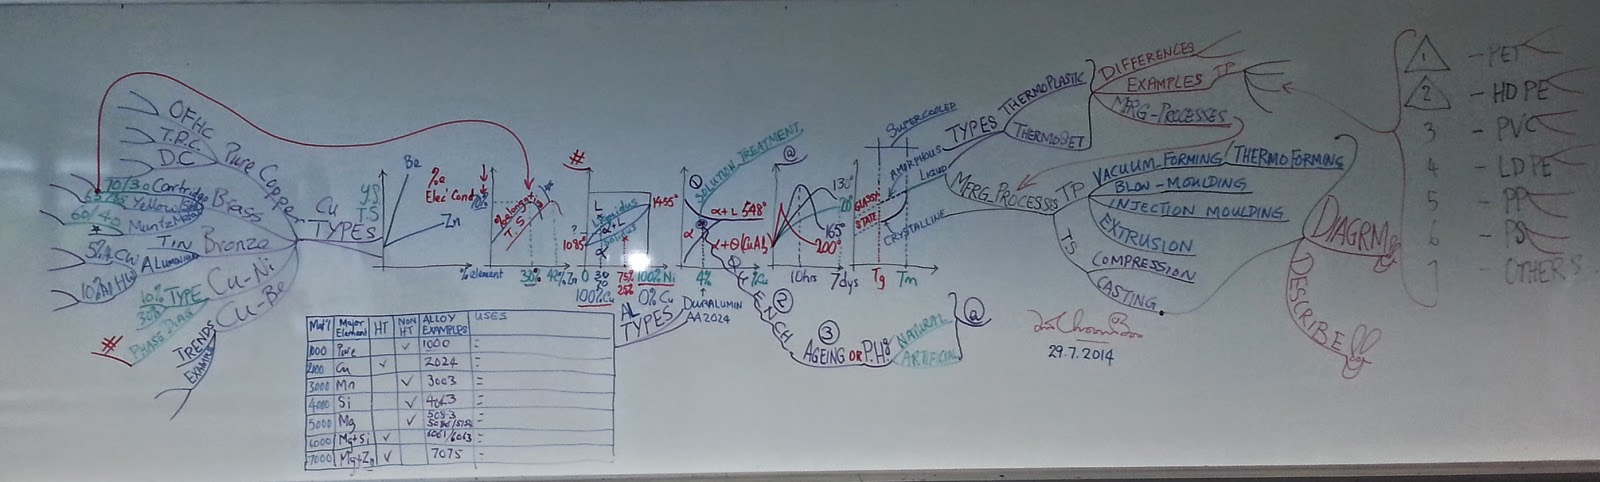 OFHC
T.P.C.
D.C
Pure Copper
70/30 Cartridge
65/35 Yellow
60/40 Muntz
Brass
TIN
5% CW ALUMINIUM
10%
Bronze
Cu-Ni
10% TYPE
30%
# PHASE DIAG
Cu-Be
TRENDS
EXAMPLES
Cu
TYPES
YS
TS
Be
Zn
% element
%e
Elec Cond
% elongation
T.S.
30%
42% Zn
#
L
Liquidus
L+S
Solidus
α
1455°
1085°
?
0
30
70
75%
25%
100% Ni
100% Cu
0% Cu
① SOLUTION TREATMENT
α+L 548°
α
α+θ(CuAl2)
4%
% Cu
DURALUMIN
AA2024
QUENCH
②
③
AGEING OR P.H.
NATURAL
ARTIFICIAL
@
@
130°
20°
165°
200°
10hrs
7dys
GLASSY
STATE
Tg
Tm
SUPERCOOLED
AMORPHOUS
LIQUID
CRYSTALLINE
AL
TYPES
Major Element HT NON HT ALLOY EXAMPLES USES
1000 Pure ✓ 1000 =
2000 Cu ✓ 2024 =
3000 Mn ✓ 3003 =
4000 Si ✓ 4043 =
5000 Mg ✓ 5083 =
6000 Mg+Si ✓ 6061/6063 =
7000 Mg+Zn ✓ 7075 =
TYPES
THERMOPLASTIC
THERMOSET
DIFFERENCES
EXAMPLES TP
MFRG-PROCESSES
MFRG PROCESSES
TP
VACUUM-FORMING/THERMOFORMING
BLOW-MOULDING
INJECTION MOULDING
EXTRUSION
T.S
COMPRESSION
CASTING
DIAGRM
DESCRIBE
29.7.2014
1 - PET
2 - HDPE
3 - PVC
4 - LDPE
5 - PP
6 - PS
7 - OTHER'S